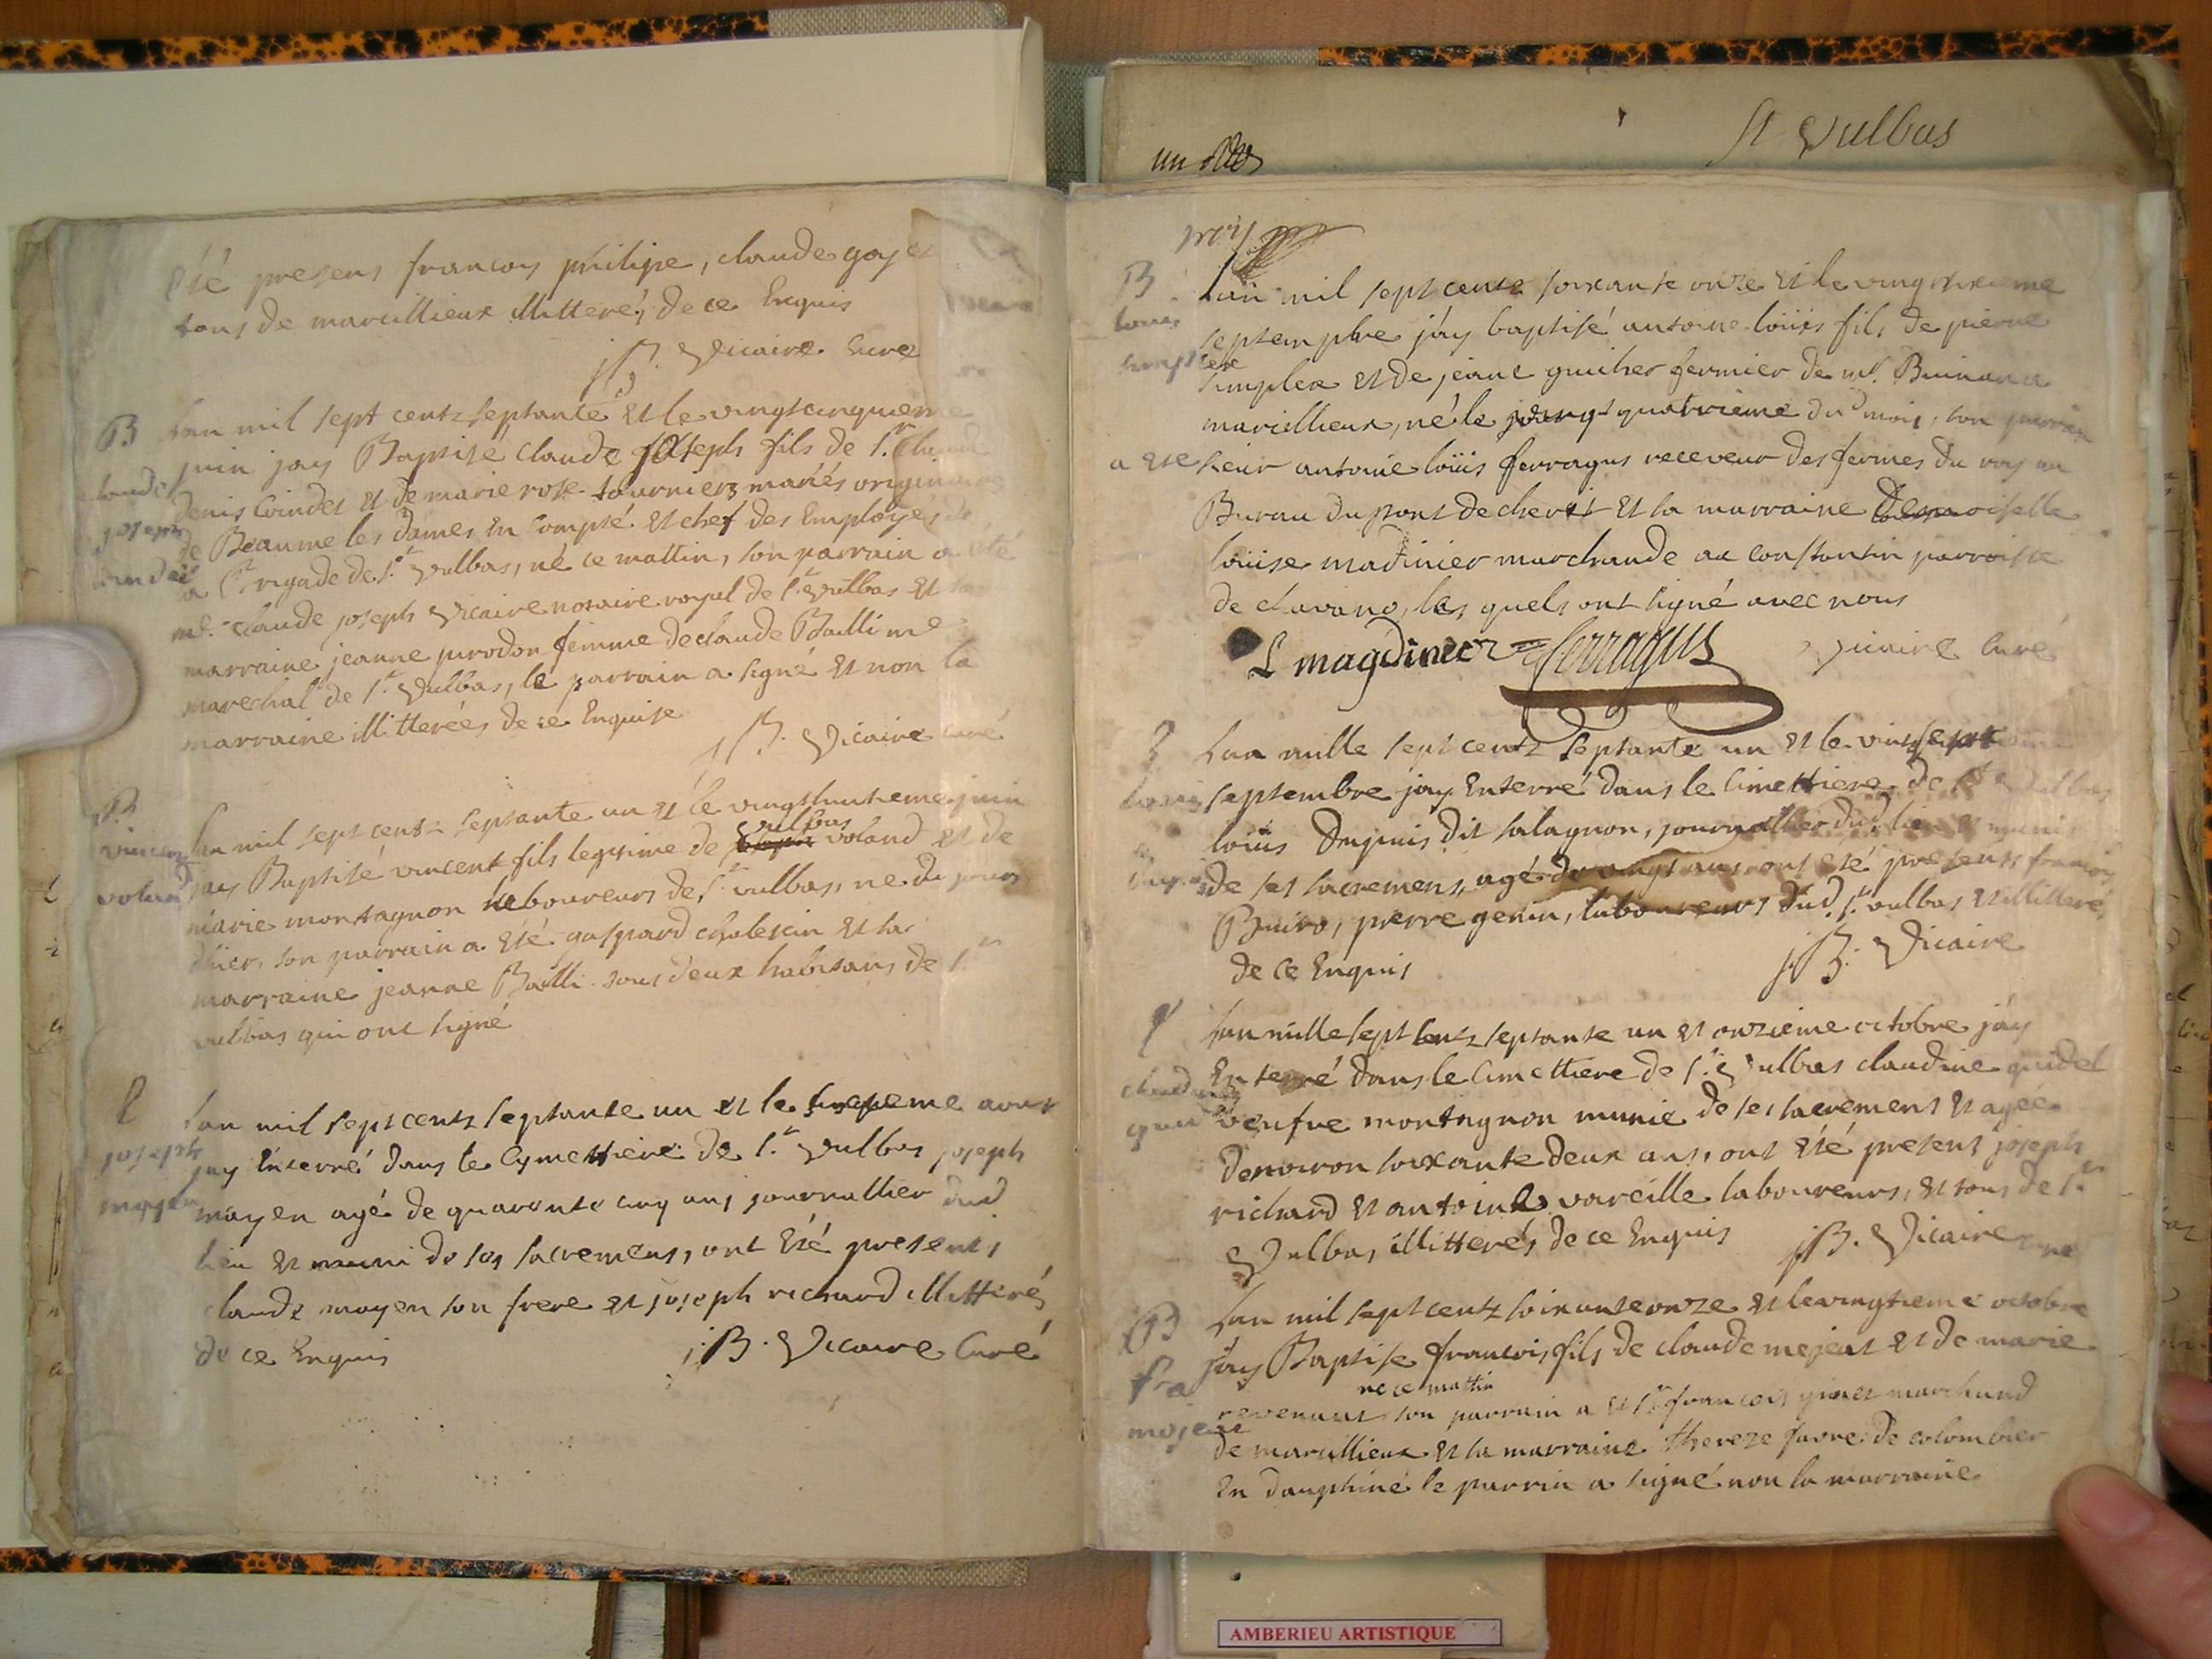 été presens francoy philipe, claude goyet
tous de marcillieux illitteré, de ce Enquis
jB. Vicaire Curé
B
Lan mil sept centz septante et le vingtcinquieme
juin jay Baptisé claude joseph fils de Sr. claude
claude
denis Coindet et de marie rose tournier mariés originaires
joseph
de Beaume les dames en Compté et chef des Employes de
Coindet
a Brigade de St. Vulbas, né ce mattin, son parrain a été
me. claude joseph Vicaire notaire royal de St. Vulbas et la
marraine jeanne prodon femme de claude Bailli me
marechal de St. Vulbas, le parrain a signé et non la
marraine illitterées de ce Enquise
jB. Vicaire curé
B
Lan mil sept centz septante un et le vingthuitieme juin
Vulbas
vincent
jay Baptisé vincent fils legitime de voland et de
voland
marie montagnon laboureurs de St. vulbas, ne du jour
dhier, son parrain a été gaspard et la
marraine jeanne Bailli tous deux habitans de St.
vulbas qui ont signé
Lan mil sept centz septante un et le aout
joseph
jay Enterré dans le Cymettiere de St. Vulbas joseph
moyen
moyen agé de quarente cinq ans journallier dud.
lieu et muni de ses sacremens, ont été presents
claude moyen son frere et joseph richard illittérés
de ce Enquis
jB. Vicaire Curé
un
St Vulbas
B
Lan mil sept centz soixante onze et le vingt sixieme
louis
septembre jáy baptisé antoine loüis fils de pierre
simplex et de jeane guicher fermier de mr. Buinand
marcillieux, né le vingt quatrieme dud mois, son parrain
a été sieur antoine loüis ferragus receveur des fermes du roy au
Bureau du pont de cheri et la marraine Demoiselle
loüise madinier marchande au constantin parroisse
de chavano, les quels ont signé avec nous
L magdinier ferragus Vicaire Curé
Lan mille sept centz septante un et le vingtsept
louis
septembre jay Enterré dans le Cimettiere de St Vulbas
loüis Dupuis dit salagnon, journallier dud. lieu et muni
dupuis
de ses sacremens, agé de vingt ans ont eté presents francoy
Buiro, pierre genin, laboureurs dud. St. vulbas et illitteré,
de ce Enquis
jB. Vicaire
Lan mille sept centz septante un et onzieme octobre jáy
Enterré dans le Cimettiere de St. Vulbas claudine guidel
claudine
veufve montagnon munie de ses sacremens et agée
denviron soixante deux ans, ont été present joseph
richard et antoine vareille laboureurs, et tous de St.
Vulbas, illitterés de ce Enquis jB. Vicaire curé
B
Lan mil sept centz soixante onze et le vingtieme octobre
fra
jáy Baptise francois, fils de claude mejeat et de marie
ne ce mattin
revenant son parrain a été Sr francois ginet marchand
de marcillieux et la marraine thereze favre de colombier
En dauphiné le parrin a signé non la marraine
AMBERIEU ARTISTIQUE